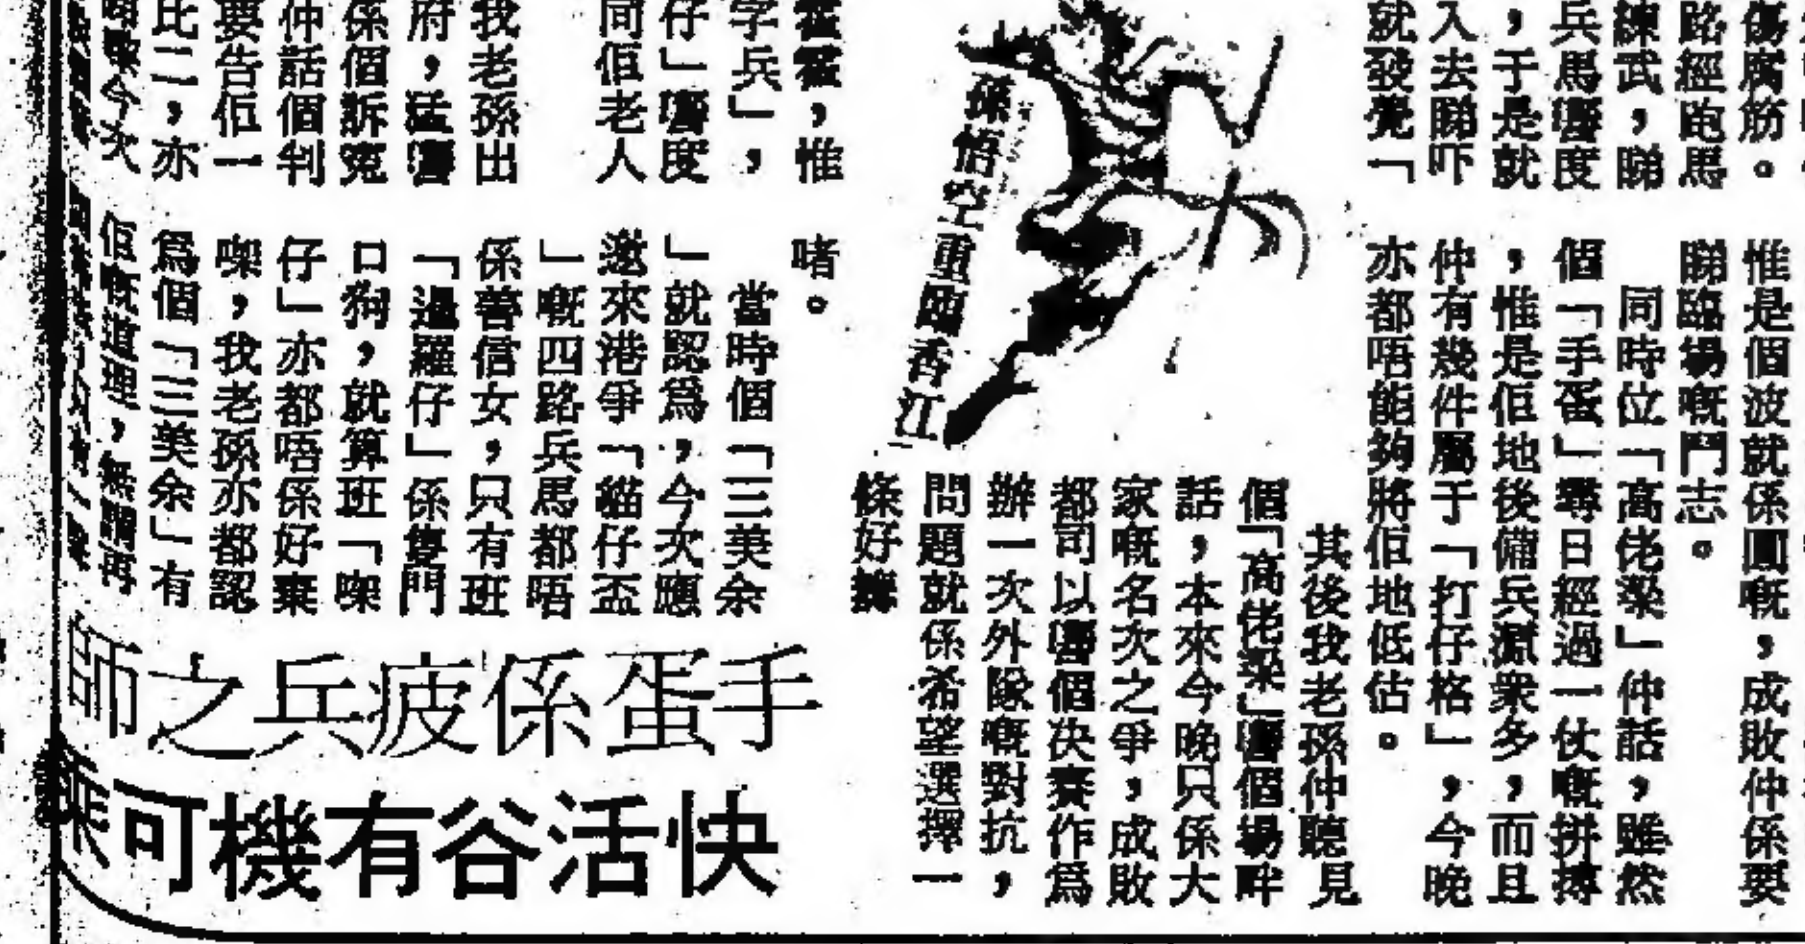 傷腐筋。
路經跑馬
練武,睇
兵馬嚮度
,于是就
入去睇吓
就發覺「
惟是個波就係圓嘅,成敗仲係要
睇臨場嘅鬥志。
同時位「高佬梁」仲話,雖然
個「手蛋」尋日經過一仗嘅拼搏
,惟是佢地後備兵源衆多,而且
仲有幾件屬于「打仔格」,今晚
亦都唔能夠將佢地低估。
其後我老孫仲聽見
個「高佬梁」嚮個場畔
話,本來今晚只係大
家嘅名次之爭,成敗
都司以嚮個決賽作爲
辦一次外隊嘅對抗,
問題就係希望選擇一
條好
孫悟空重臨香江
,惟
字兵」,
仔」嚮度
同佢老人
我老孫出
府,猛嚮
係個訴寃
仲話個判
要告佢一
比二,亦
今次
啫。
當時個「三美余
」就認爲,今次應
邀來港爭「貓仔盃
」嘅四路兵馬都唔
係善信女,只有班
「暹羅仔」係隻門
口狗,就算班「㗎
仔」亦都唔係好棄
㗎,我老孫亦都認
爲個「三美余」有
佢嘅道理,無謂再
手蛋係疲兵之師
快活谷有機可乘